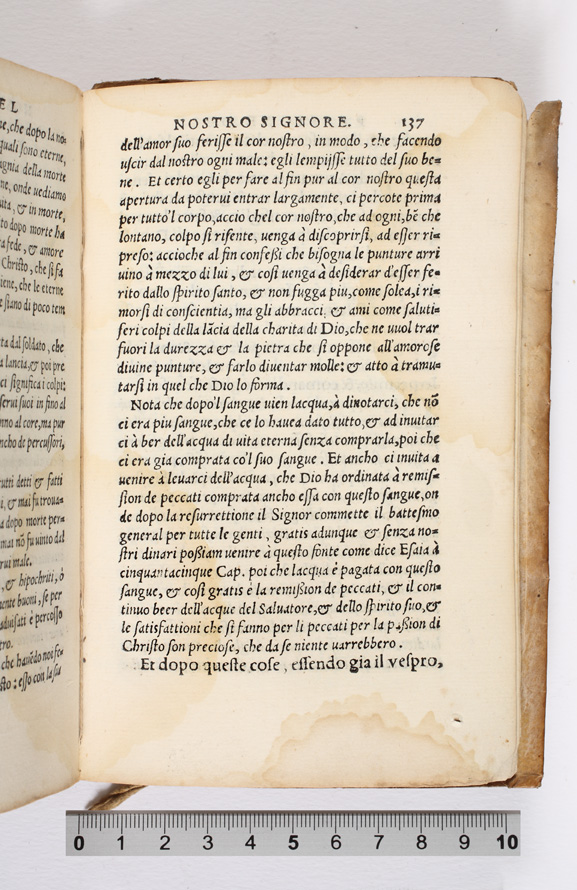 EL
ne, che dopo la no-
quali sono eterne,
gnia della morte
ne, onde uediamo
uta, & in morte,
to dopo morte ha
a fede, & amore
Christo, che si fa
iene, che le eterne
e siano di poco tem
ta dal soldato, che
a lancia, & poi pre
ci significa i colpi
serui suoi in fino al
nno al core, ma pur
ncho de percussori,
utti detti & fatti
i, & mai fu troua-
a dopo morte per-
mai nō fu uinio dal
rui male.
, & hipochriti, ò
nente buoni, se per
aduisati è percosso
tro.
che hauēdo noi fe-
sto: esso con la sua
NOSTRO SIGNORE. 137
dell'amor suo ferisse il cor nostro, in modo, che facendo
uscir dal nostro ogni male: egli lempijsse tutto del suo be-
ne. Et certo egli per fare al fin pur al cor nostro questa
apertura da poterui entrar largamente, ci percote prima
per tutto'l corpo, accio chel cor nostro, che ad ogni, bē che
lontano, colpo si risente, uenga à discoprirsi, ad esser ri-
preso: accioche al fin confessi che bisogna le punture arri
uino à mezzo di lui, & cosi uenga à desiderar d'esser fe-
rito dallo spirito santo, & non fugga piu, come solea, i ri-
morsi di conscientia, ma gli abbracci, & ami come saluti-
feri colpi della lācia della charita di Dio, che ne uuol trar
fuori la durezza & la pietra che si oppone all'amorose
diuine punture, & farlo diuentar molle: & atto à tramu-
tarsi in quel che Dio lo forma.
Nota che dopo'l sangue uien lacqua, à dinotarci, che nō
ci era piu sangue, che ce lo hauea dato tutto, & ad inuitar
ci à ber dell'acqua di uita eterna senza comprarla, poi che
ci era gia comprata co'l suo sangue. Et ancho ci inuita a
uenire à leuarci dell'acqua, che Dio ha ordinata à remis-
sion de peccati comprata ancho essa con questo sangue, on
de dopo la resurrettione il Signor commette il battesmo
general per tutte le genti, gratis adunque & senza no-
stri dinari possiam uenire à questo fonte come dice Esaia à
cinquantacinque Cap. poi che lacqua è pagata con questo
sangue, & cosi gratis è la remission de peccati, & il con-
tinuo beer dell'acque del Saluatore, & dello spirito suo, &
le satisfattioni che si fanno per li peccati per la passion di
Christo son preciose, che da se niente uarrebbero.
Et dopo queste cose, essendo gia il vespro,
0 1 2 3 4 5 6 7 8 9 10